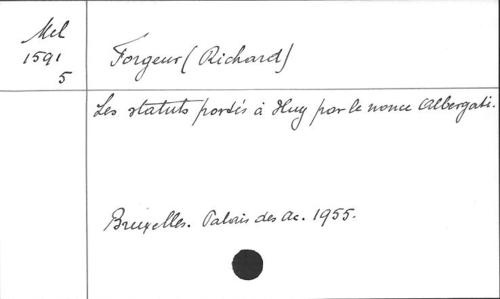 Mel
1591
5
Forgeur (Richard)
Les statuts portés à Huy par le nonce Albergati.
Bruxelles. Palais des Ac. 1955.